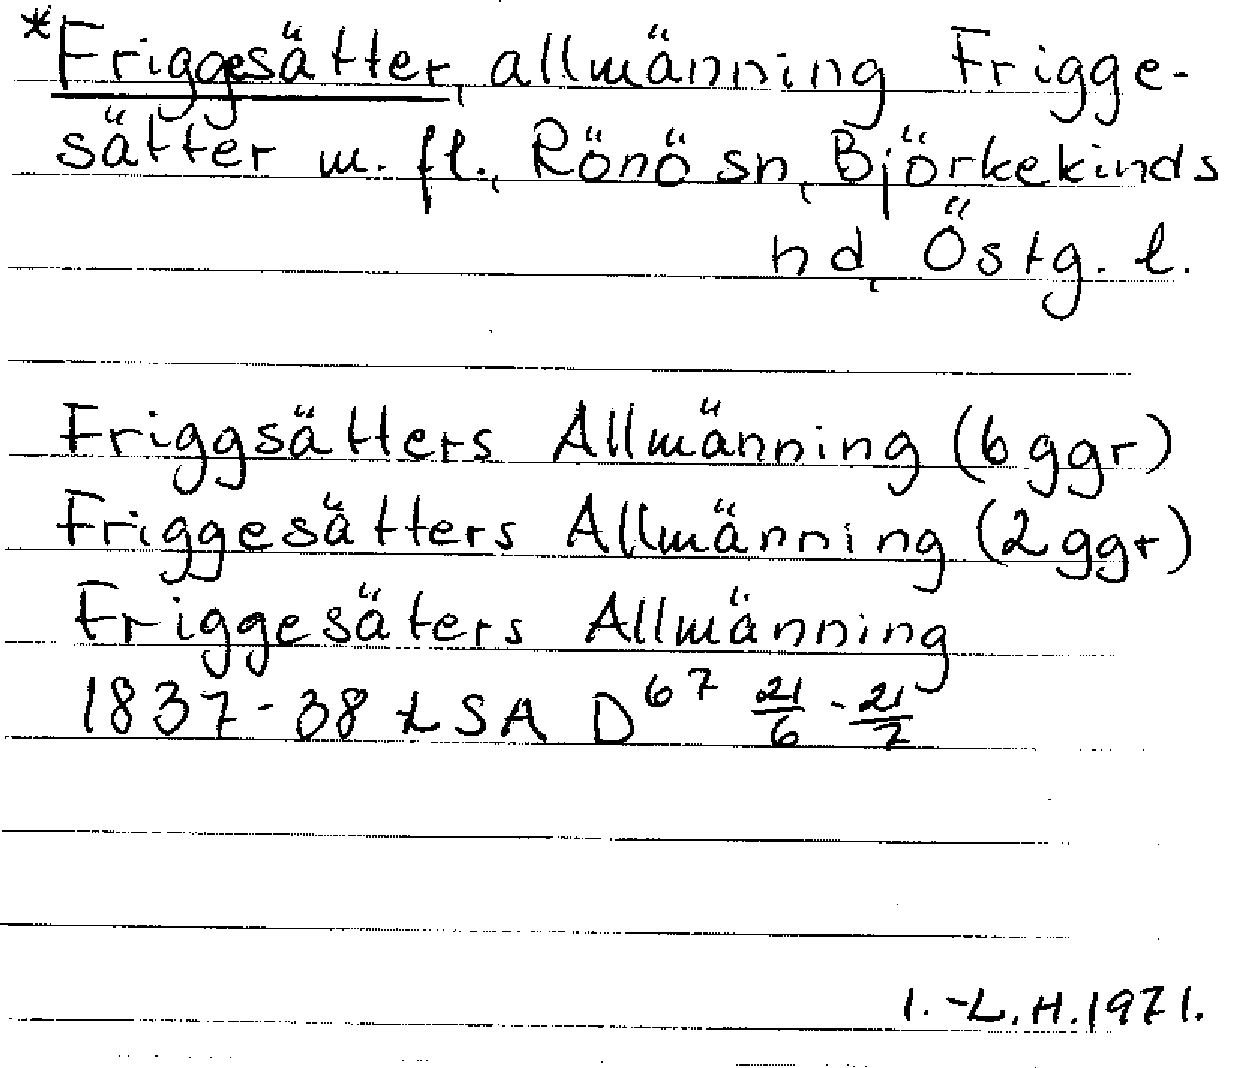 *Friggesätter, allmänning Frigge-
sätter m. fl., Rönö sn, Björkekinds
hd, Östg. l.
Friggsätters Allmänning (6 ggr)
Friggesätters Allmänning (2 ggr)
Friggesäters Allmänning
1837-38 LSA D67 21/6 - 21/7
I.-L.H.1971.